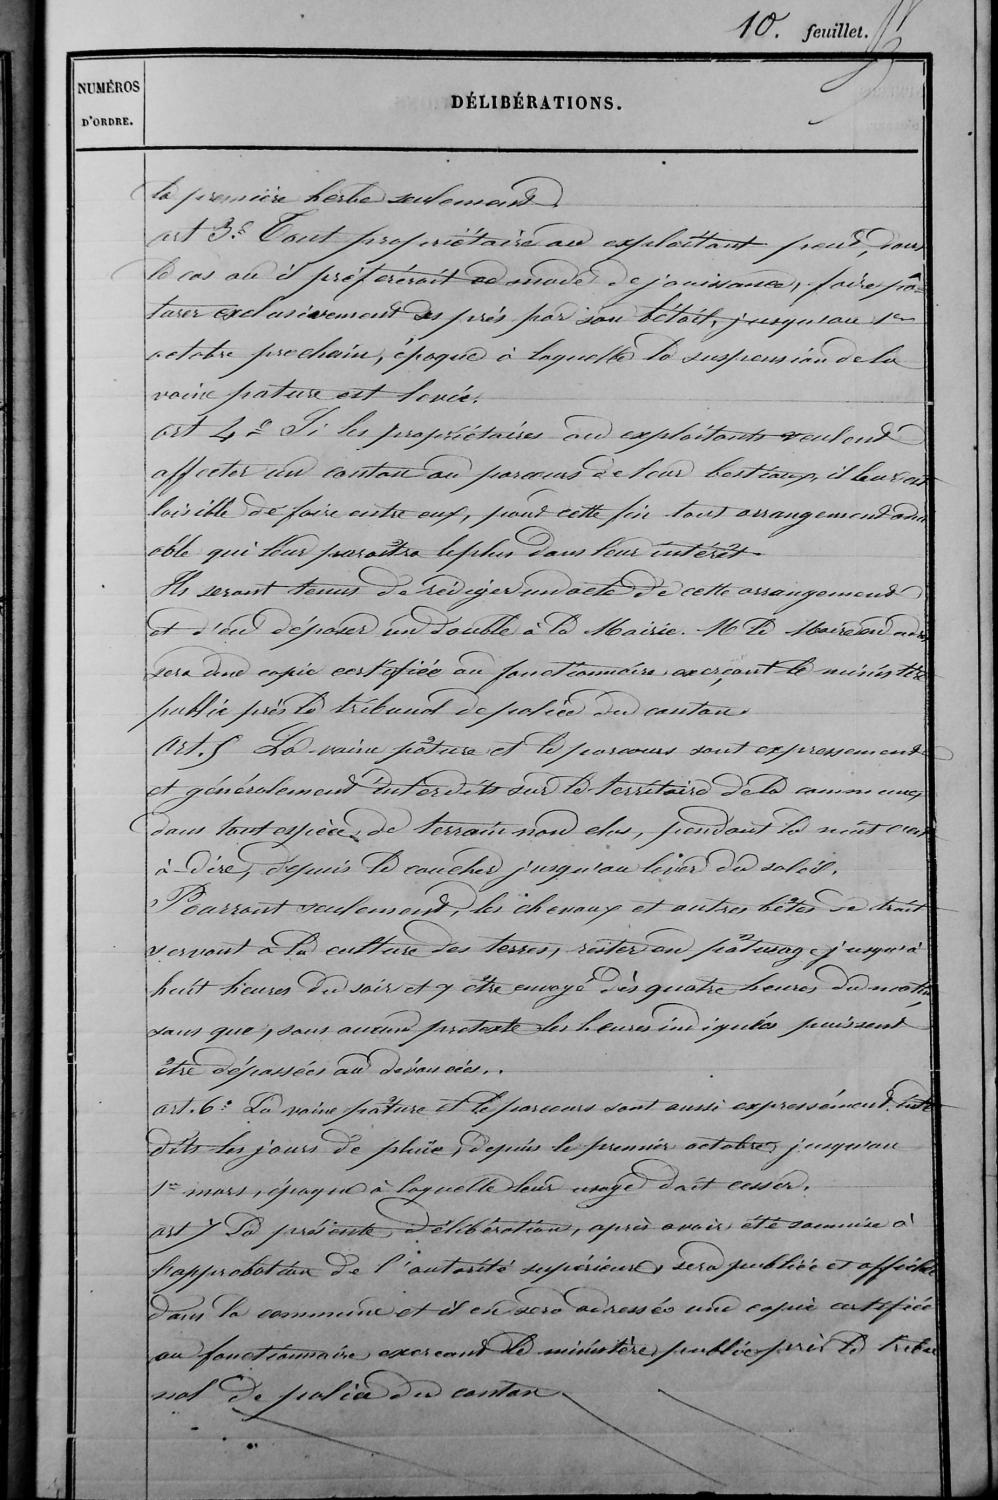 10. feuillet.
NUMÉROS
D'ORDRE.
DÉLIBÉRATIONS.
la première herbe seulement
art 3e Tout propriétaire ou exploitant peut, dans
le cas où il préférerait ce mode de jouissance, faire pâ=
turer exclusivement ses prés par son bétail, jusqu'au 1er
octobre prochain, époque à laquelle la suspension de la
vaine pature est levée.
art 4e Si les propriétaires ou exploitants veulent
affecter un canton au parcours de leur bestiaux, il leur est
loisible de faire entre eux, pour cette fin tout arrangement ami
able qui leur paraîtra le plus dans leur intérêt.
Ils seront tenus de rédiger un acte de cette arrangement
et d'en déposer un double à la Mairie. M le Maire en adres
sera une copie certifiée au fonctionnaire exerçant le ministère
public près le tribunal de police du canton.
Art. 5 La vaine pâture et le parcours sont expressement
et généralement interdits sur le territoire de la commune,
dans tout espèce de terrain non clos, pendant la nuit c'est
à-dire, depuis le coucher jusqu'au lever du soleil.
Pourront seulement, les chevaux et autres bêtes de trait
servant à la culture des terres, rester en pâturage jusqu'à
huit heures du soir et y être envoyé dès quatre heures du matin,
sans que, sous aucun pretexte les heures indiquées puissent
être dépassées ou devancées.
art. 6e La vaine pâture et le parcours sont aussi expressément inter
dits les jours de pluie, depuis le premier octobre jusqu'au
1er mars, époque à laquelle leur usage doit cesser.
art 7 La présente délibération, après avoir été soumise à
l'approbation de l'autorité supérieure, sera publiée et affichée
dans la commune et il en sera adressée une copie certifiée
au fonctionnaire exerçant le ministère public près le tribu
nal de police du canton